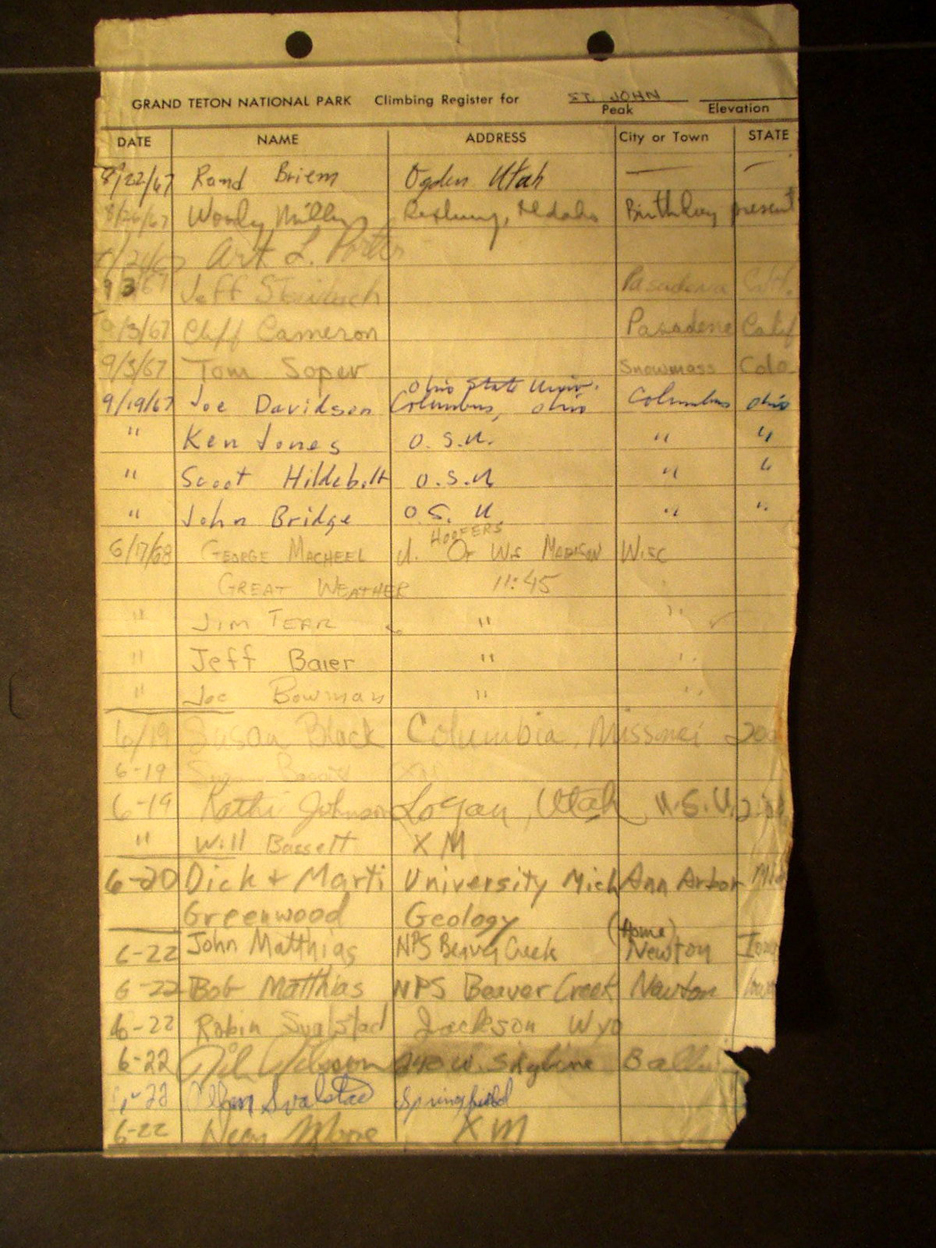 GRAND TETON NATIONAL PARK Climbing Register for ST. JOHN
Peak Elevation
DATE NAME ADDRESS City or Town STATE
8/22/67 Rand Briem Ogden Utah — —
8/26/67 Woody Birthday present
Art L. Porter
Jeff Pasadena Calif.
9/3/67 Cliff Cameron Pasadena Calif
9/3/67 Tom Soper Snowmass Colo
Ohio State Univ.
9/19/67 Joe Davidson Columbus, Ohio Columbus Ohio
" Ken Jones O.S.U. " "
" Scoot Hildebolt O.S.U. " "
" John Bridge O.S. U " "
HOOFERS
6/17/68 GEORGE MACHEEL U. OF WIS MADISON WISC
GREAT WEATHER 11:45
" JIM TERR " "
" Jeff Baier " "
" Joe Bowman " "
6/19 Susan Black Columbia, Missouri
6-19
6-19 Kathi Johnson Logan, Utah U.S.U.
" Will Bassett XM
6-20 Dick + Marti University Mich Ann Arbor
Greenwood Geology
(Home)
6-22 John Matthias NPS Beaver Creek Newton Iowa
6-22 Bob Matthias NPS Beaver Creek Newton Iowa
6-22 Robin Svalstad Jackson Wyo
6-22 W. Skyline
Svalstad Springfield
6-22 Moore XM